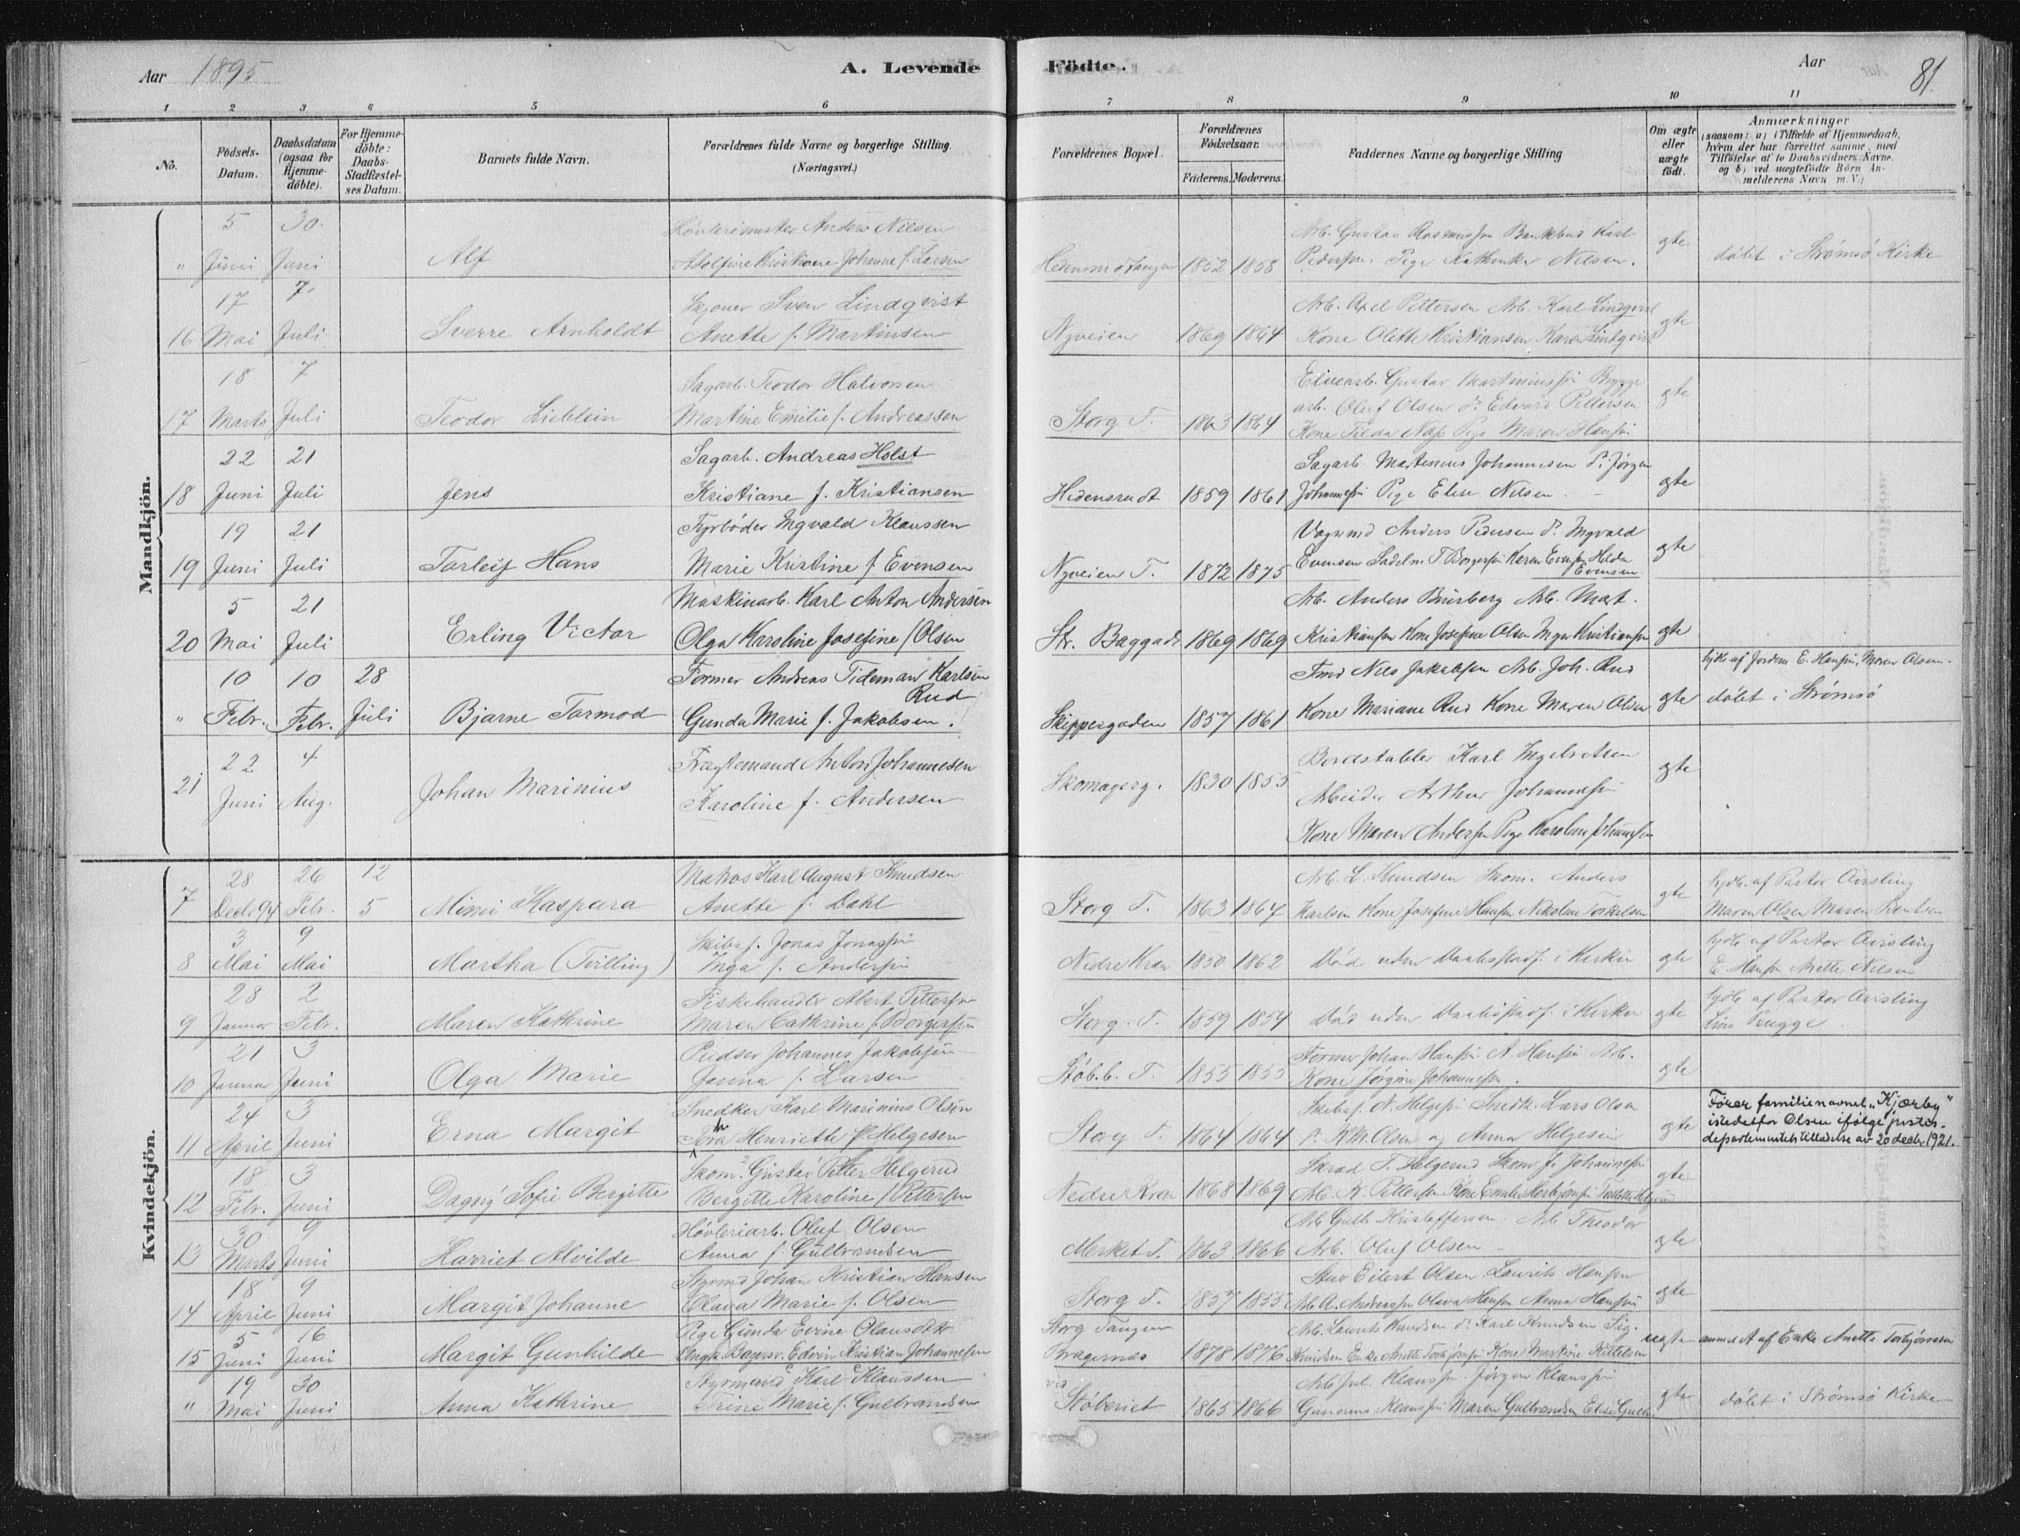 Aar 1895
A. Levende Födte.
Aar
81.
1 2 3 4 5 6 7 8 9 10 11
No.
Födsels-Datum.
Daabsdatum (ogsaa for Hjemme-döbte).
For Hjemme-döbte: Daabs-Stadfæstel-ses Datum.
Barnets fulde Navn.
Forældrenes fulde Navne og borgerlige Stilling. (Næringsvei.)
Forældrenes Bopæl.
Forældrenes Födselsaar.
Faderens. Moderens.
Faddernes Navne og borgerlige Stilling
Om ægte eller uægte födt.
Anmærkninger
(saasom: a) i Tilfælde af Hjemmedaab, hvem der har forrettet samme, med Tilföielse af to Daabsvidners Navne, og b) ved uægtefödte Börn An-melderens Navn m. V.)
Mandkjön.
" 5 Juni 30. Juni
Alf
Høvlerimester Anders Nilsen
Adolfine Kristiane Johanne f. Larsen
1852 1858
Pedersen. Pige Kathinka Nilsen.
gte
døbt i Strømsø Kirke
16 17 Mai 7. Juli
Sverre Arnholdt
Sven Lindqvist
Anette f. Martinsen
Nyveien 1869 1864
Arb. Axel Pettersen Arb. Karl Lindqvist
Kone Olette Kristiansen Karen Lindqvist
gte
17 18 Marts 7 Juli
Teodor Lieblein
Sagarb. Teodor Halvorsen
Martine Emilie f. Andreassen
Storg T. 1863 1864
arb. Oluf Olsen d. Edvard Pettersen
gte
18 22 Juni 21 Juli
Jens
Sagarb. Andreas Holst
Kristiane f. Kristiansen
Hedensrudt 1859 1861
Sagarb. Martinius Johannesen Jørgen
Pige Elise Nilsen.
gte
19 19 Juni 21 Juli
Torleif Hans
Fyrbøder Ingvald Klaussen
Marie Kristine f Evensen
Nyveien T. 1872 1875
Anders Pedersen Ingvald
Evensen
gte
20 5 Mai 21 Juli
Erling Victor
Maskinarb. Karl Anton Andersen
Olga Karoline Josefine f Olsen
Str. Bæggade 1869 1869
Arb. Anders Arb. Mat.
Kristiansen Kone Josefine Olsen Inga Kristiansen
gte
" 10 Febr. 10 Febr. 28 Juli
Bjarne Tormod
Former Andreas Tideman Karlsen Rud
Gunda Marie f. Jakobsen.
Skippergaden 1857 1861
Nils Jakobsen Arb. Joh. Rud
Kone Mariane Rud Kone Maren Olsen
gte
hjdb. af Jordm. E. Hansen, Maren Olsen.
døbt i Strømsø
21 22 Juni 4 Aug.
Johan Marinius
Fragtemand Anton Johannesen
Karoline f. Andersen
Skomagerg. 1830 1855
Bordstabler Karl Ingebretsen
Arbeider Arthur Johannesen
Kone Maren Andersen Pige Karoline Johannesen
gte
Kvindekjön.
7 28 Decbr 94 26 Febr. 12 5
Mimi Kaspara
Matros Karl August Knudsen
Anette f. Dahl
Storg T. 1863 1867
Arb. L. Knudsen Skom. Anders
Karlsen Kone Josefine Hansen Nikoline Torkelsen
gte
hjdb. af Pastor Qvisling
Maren Olsen Maren Bentsen
8 3 Mai 9 Mai
Martha (Tvilling)
Skibsf. Jonas
Inga f. Andersen
Nedre Kran 1850 1862
Død uden Daabsstadf. i Kirken
gte
hjdb af Pastor Qvisling
E. Hansen Anette Nilsen
9 28 Januar 2 Febr.
Maren Kathrine
Fiskehandler Abert Pettersen
Maren Cathrine f. Borgersen
Storg. T. 1859 1854
Død uden Daabsstadf. i Kirken
gte
hjdb af Pastor Qvisling
10 21 Januar 3 Juni
Olga Marie
Pudser Johannes Jakobsen
Janna f. Larsen
Støb.b. T. 1855 1855
Former Johan Hansen A. Hansen Arb.
Kone Jørgine Johannesen.
gte
11 24 April 3 Juni
Erna Margit
Snedker Karl Marinius Olsen
Henriette f. Helgesen
Storg T. 1864 1864
Skibsf. A. Helgesen Snedk. Lars Olsen
K.M. Olsen og Anna Helgesen
gte
Fører familienavnet „Kjærby“
istedetfor Olsen ifølge justits-
departementets tilladelse av 20 decbr. 1921.
12 18 Febr. 3 Juni
Dagny Sofie Bergitte
Skom. Gustav Petter Helgerud
Bergitte Karoline f Pettersen
Nedre Kran 1868 1869
T. Helgerud Skom J. Johannesen
Arb. K. Pettersen
gte
13 30 Marts 9 Juni
Harriet Alvilde
Høvleriarb. Oluf Olsen
Anna f. Gulbrandsen
Merket T. 1863 1866
Arb Gulb. Kristoffersen. Arb Theodor
Arb. Oluf Olsen
gte
14 18 April 9 Juni
Margit Johanne
Styrmd Johan Kristian Hansen
Olava Marie f. Olsen
Storg T. 1857 1855
Eilert Olsen Laurits Hansen
Arb A. Andreassen Olava Hansen Anna Hansen
gte
15 5 Juni 16 Juni
Margit Gunhilde
Pige Gunda Evine Olausdtr
Edvin Kristian Johannesen
Storg Tangen
Bragernes 1878 1876
Arb. Laurits Knudsen d. Karl Knudsen Sig.
Knudsen Enke Anette Torbjørnsen Kone Martine Kittelsen
uegte
anmeldt af Enke Anette Torbjørnsen
" 19 Mai 30 Juni
Anna Kathrine
Styrmand Karl Klaussen
Trine Marie f. Gulbrandsen
ved Støberiet 1865 1866
Arb Jul. Klaussen Jørgen Klaussen
Gunerius Klaussen Maren Gulbrandsen Elise Gulbr.
gte
døbt i Strømsø Kirke